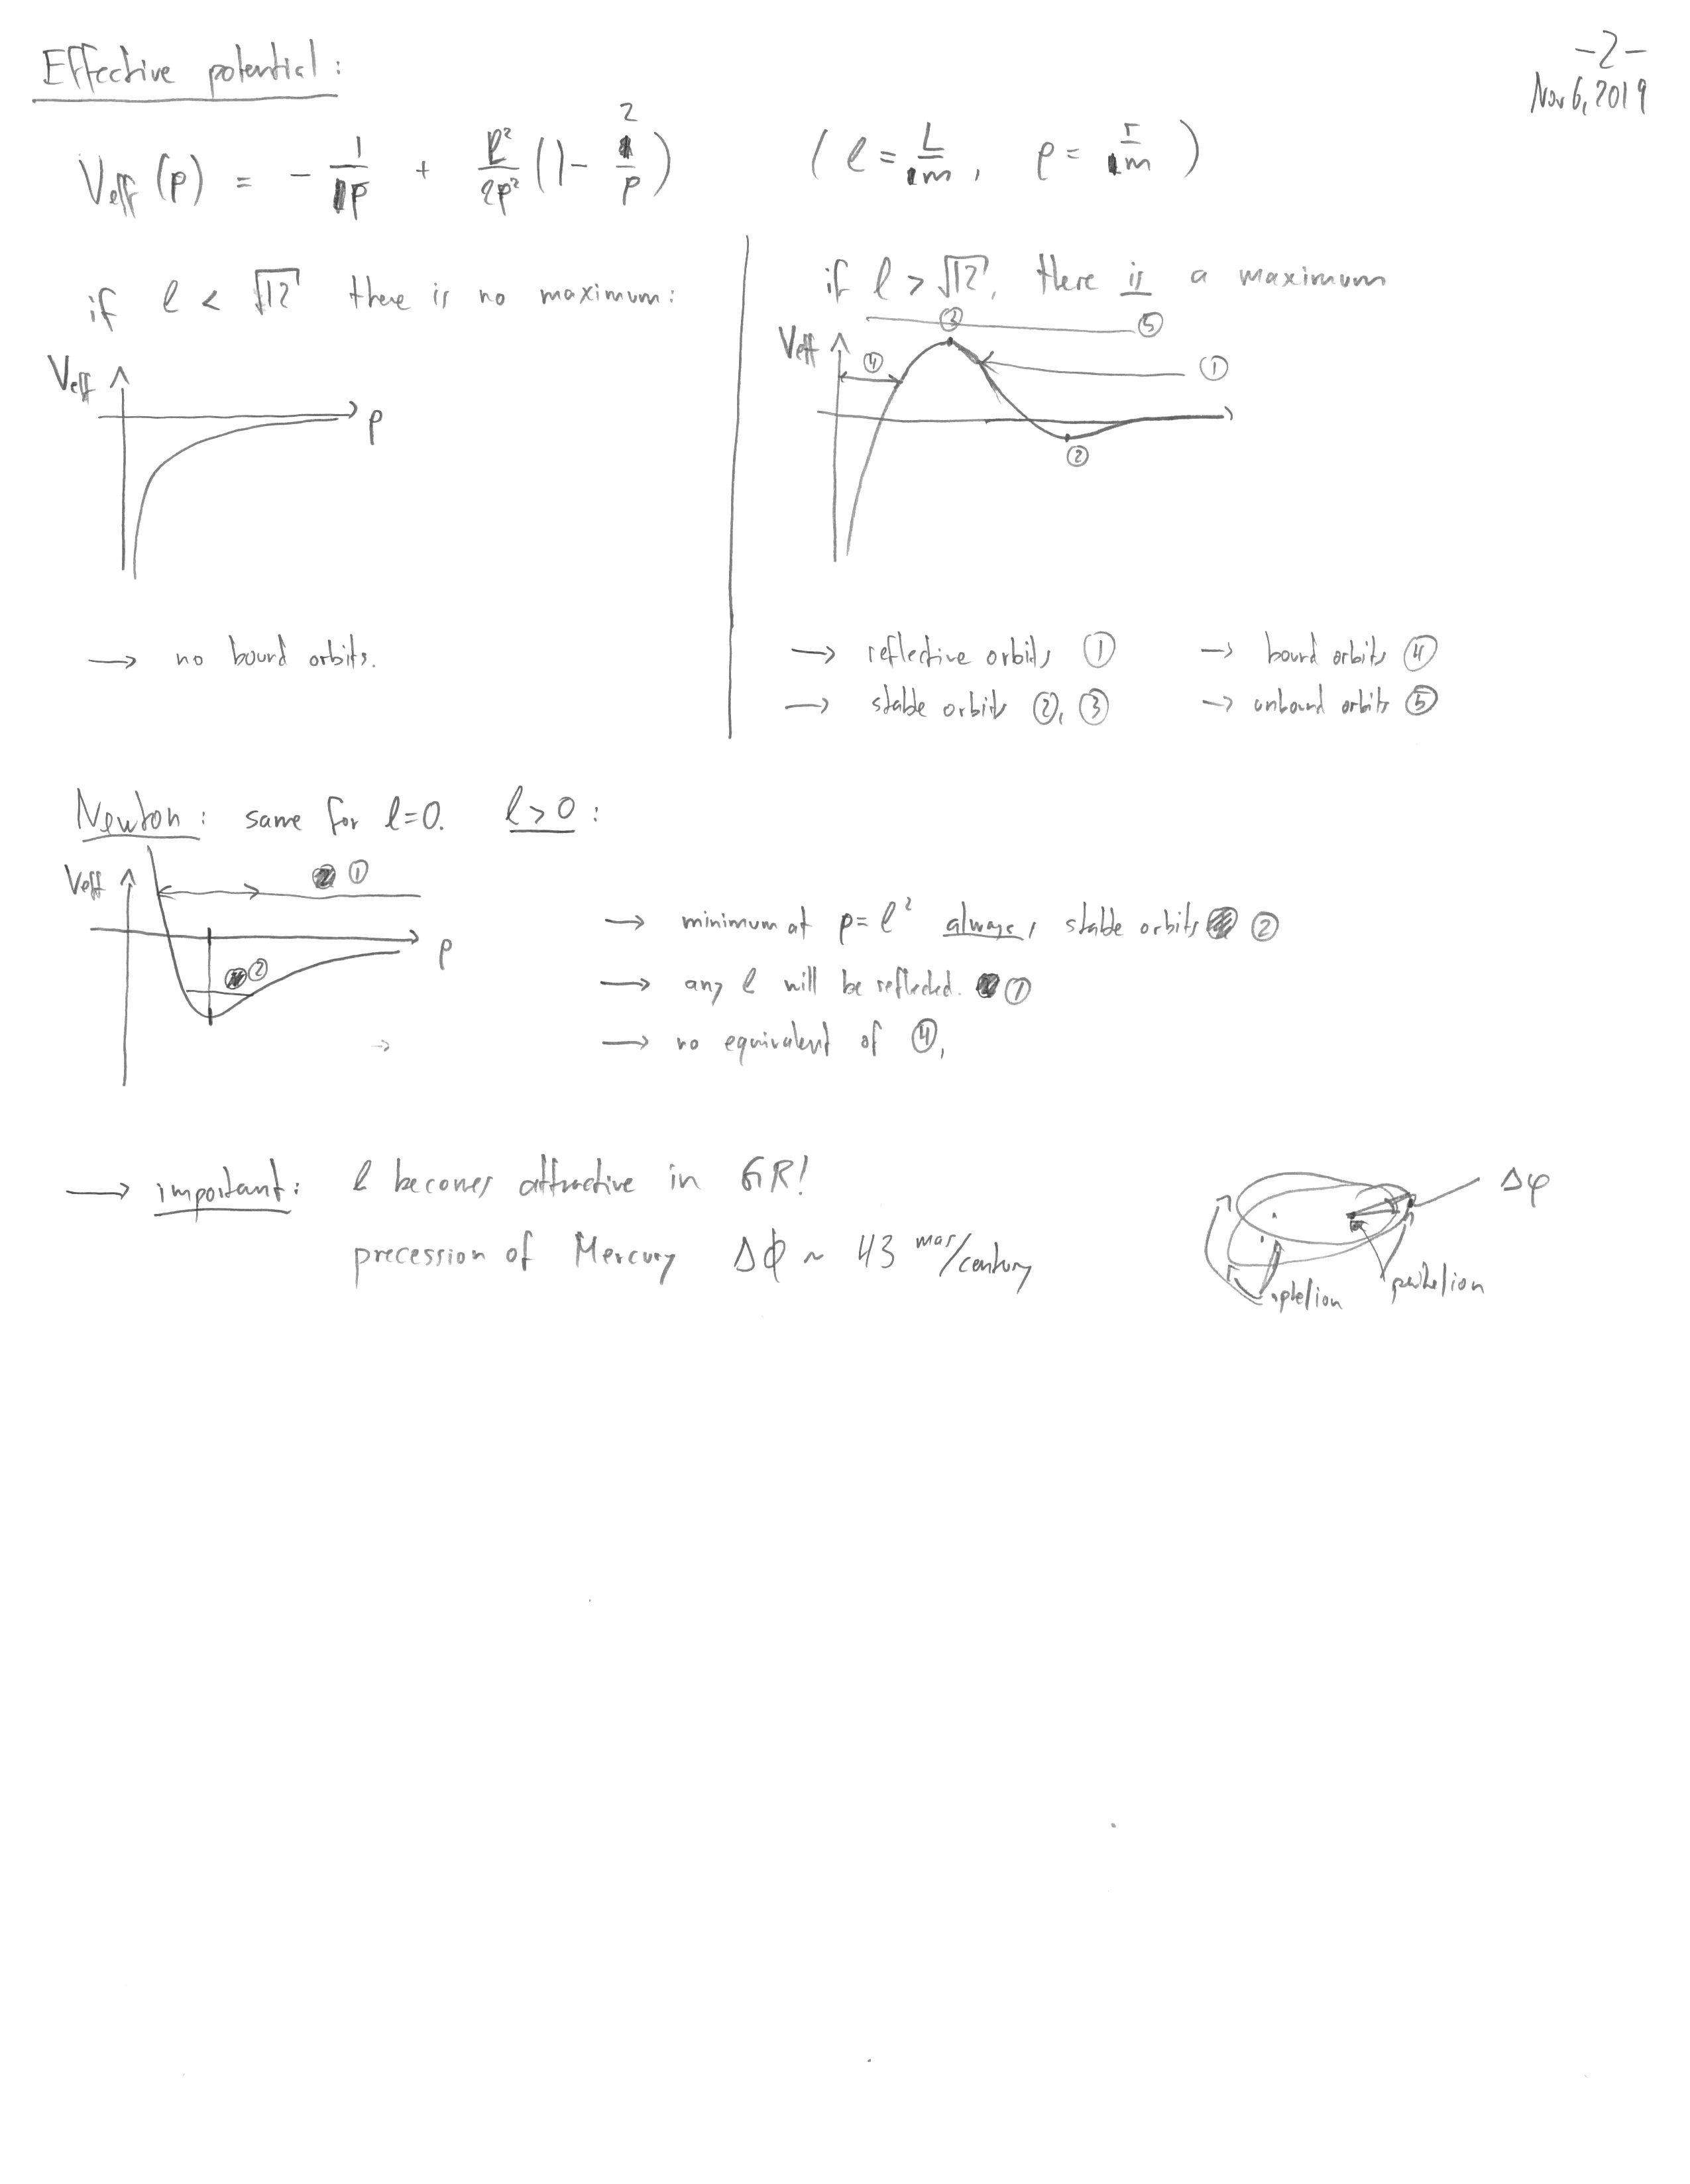 -2-
Nov 6, 2019
Effective potential:
V_eff (ρ) = - 1/ρ + l²/2ρ² (1 - 2/ρ) ( l = L/m, ρ = r/m )
if l < √12 there is no maximum:
V_eff
ρ
→ no bound orbits.
if l > √12, there is a maximum
③ ⑤
V_eff ④ ①
②
→ reflective orbits ① → bound orbits ④
→ stable orbits ②, ③ → unbound orbits ⑤
Newton: same for l=0. l > 0:
V_eff ①
ρ
②
→ minimum at ρ = l² always, stable orbits ②
→ any l will be reflected. ①
→ no equivalent of ④,
→ important: l becomes attractive in GR!
precession of Mercury Δϕ ~ 43 mas/century
Δφ
aphelion perihelion